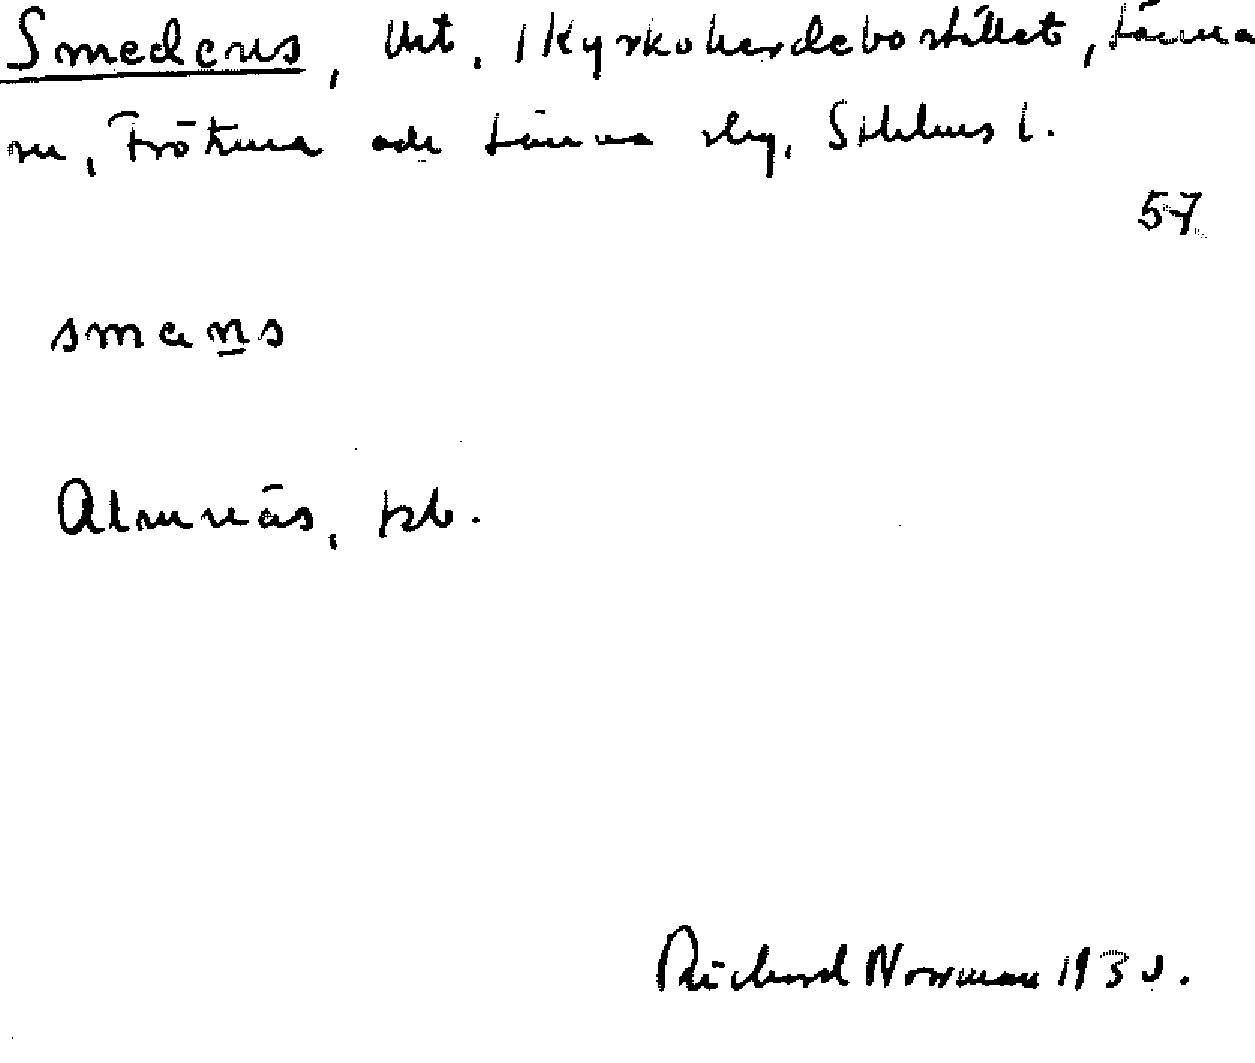 Smedens, litt. 1 Kyrkoherdebostället, Länna
sn, Frötuna och Länna slg, Sthlms l.
57
smens
Almnäs, psb.
Richard Norrman 1930.